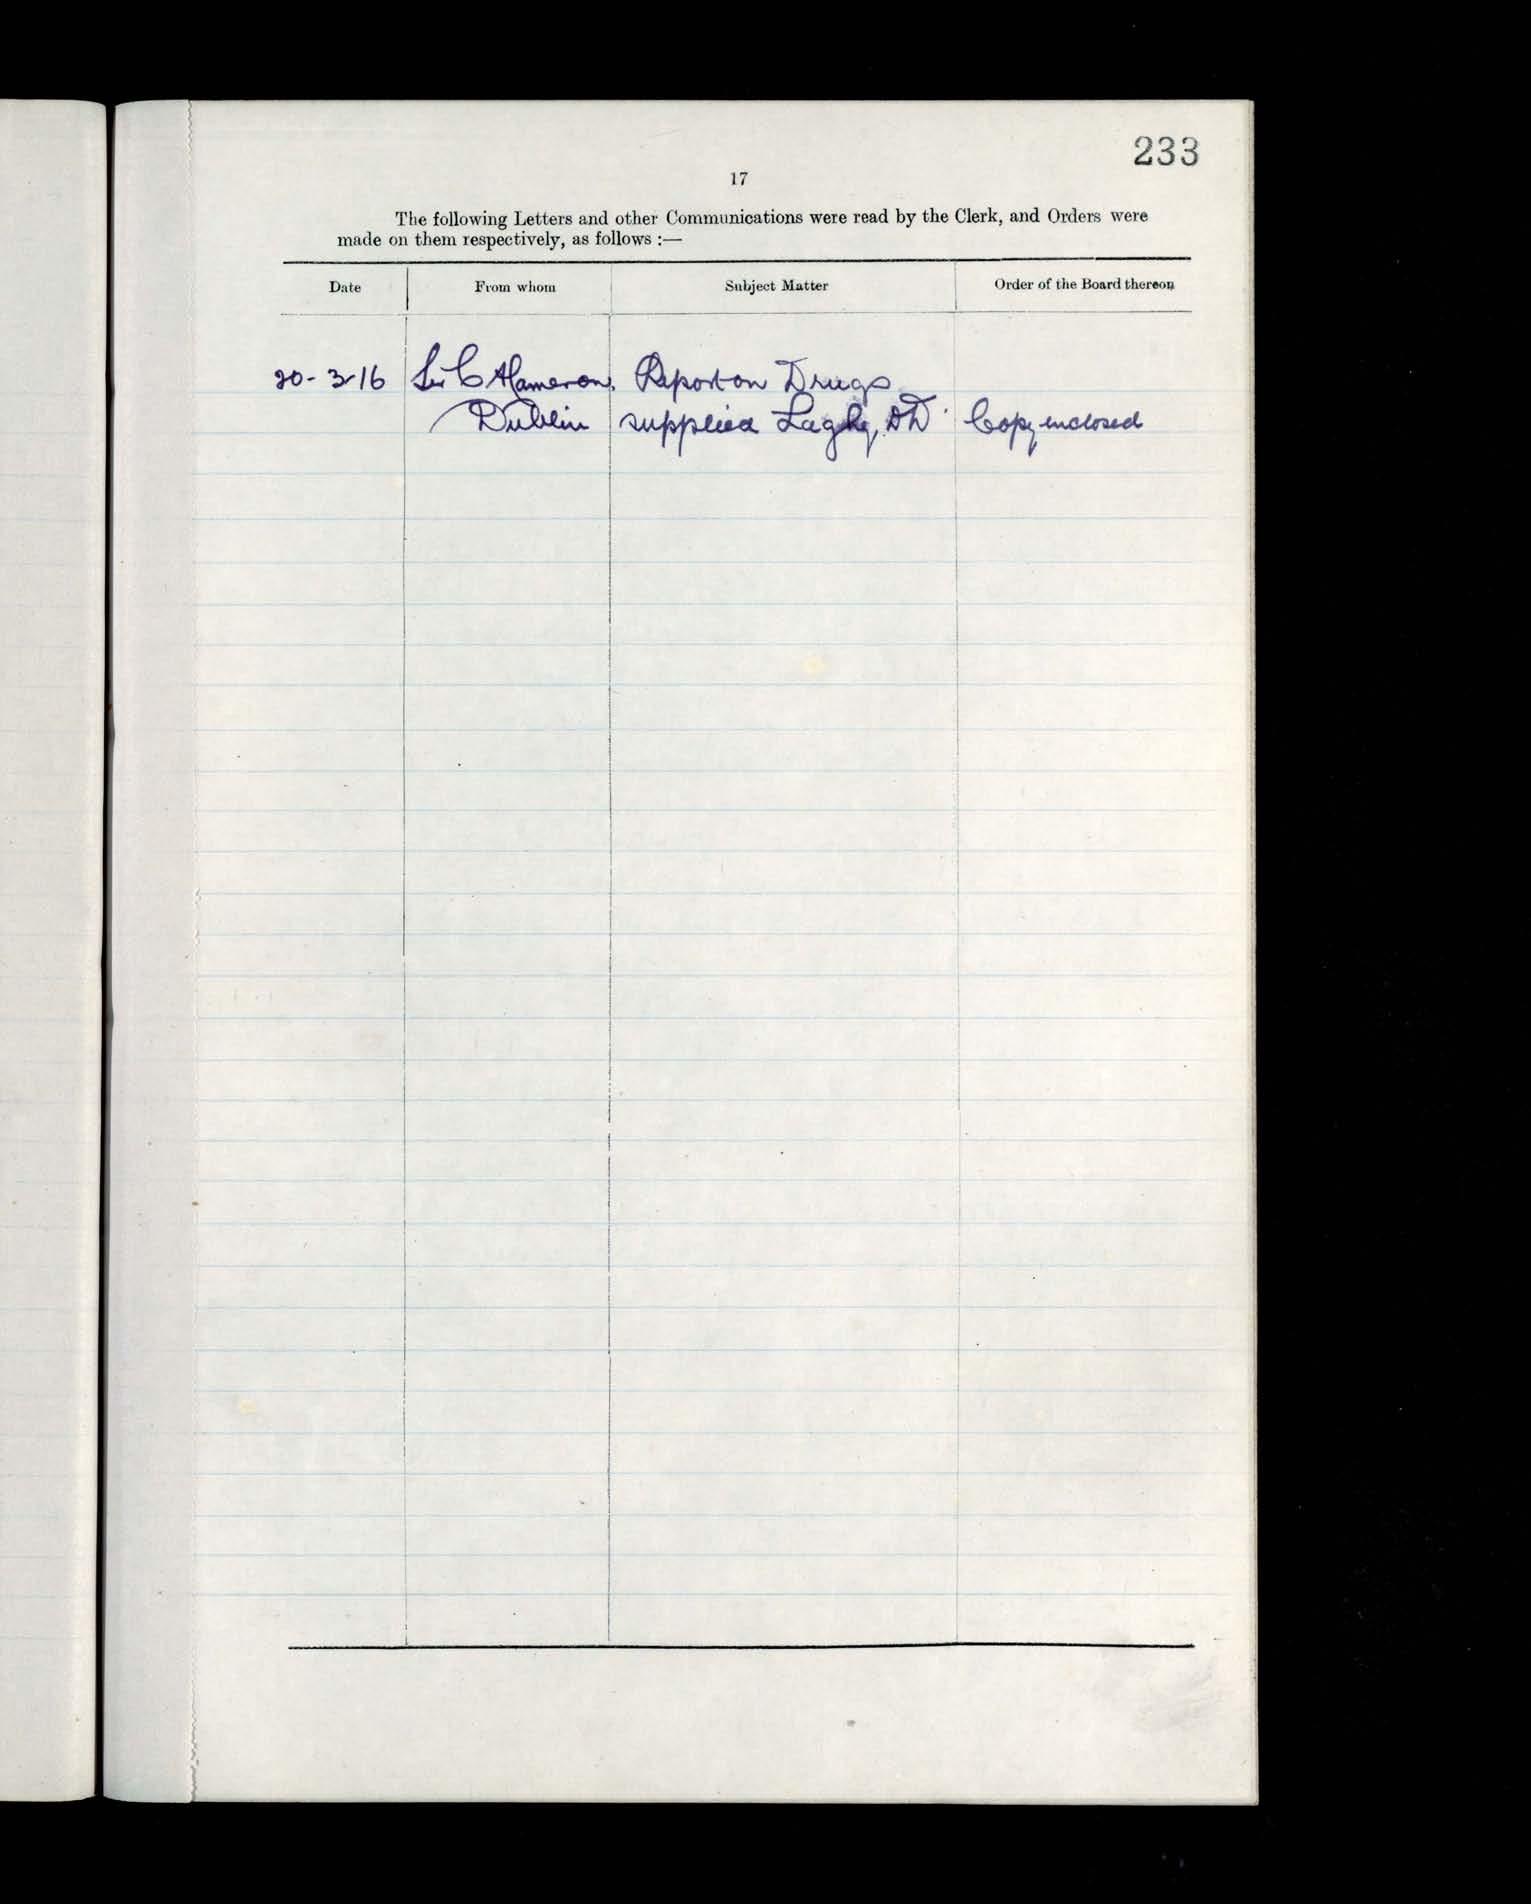 233
17
The following Letters and other Communications were read by the Clerk, and Orders were
made on them respectively, as follows :—
Date From whom Subject Matter Order of the Board thereon
20-3-16 Sir C Cameron, Report on Drugs
Dublin supplied Laghy, DD Copy enclosed